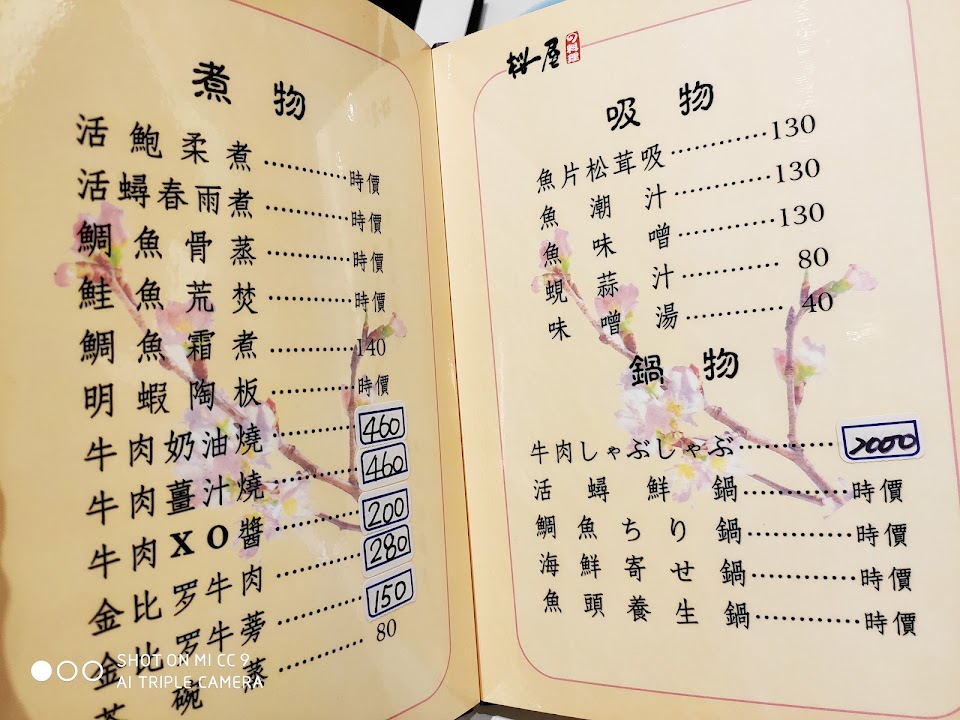 煮物
活鮑柔煮............時價
活蟳春雨煮............時價
鯛魚骨蒸............時價
鮭魚荒焚............時價
鯛魚霜煮............140
明蝦陶板............時價
牛肉奶油燒............460
牛肉薑汁燒............460
牛肉XO醬............200
金比罗牛肉............280
金比罗牛蒡............150
茶碗蒸............80
桜屋
の料理
吸物
魚片松茸吸............130
魚潮汁............130
魚味噌............130
蜆蒜汁............80
味噌湯............40
鍋物
牛肉しゃぶしゃぶ............2000
活蟳鮮鍋............時價
鯛魚ちり鍋............時價
海鮮寄せ鍋............時價
魚頭養生鍋............時價
SHOT ON MI CC 9
AI TRIPLE CAMERA